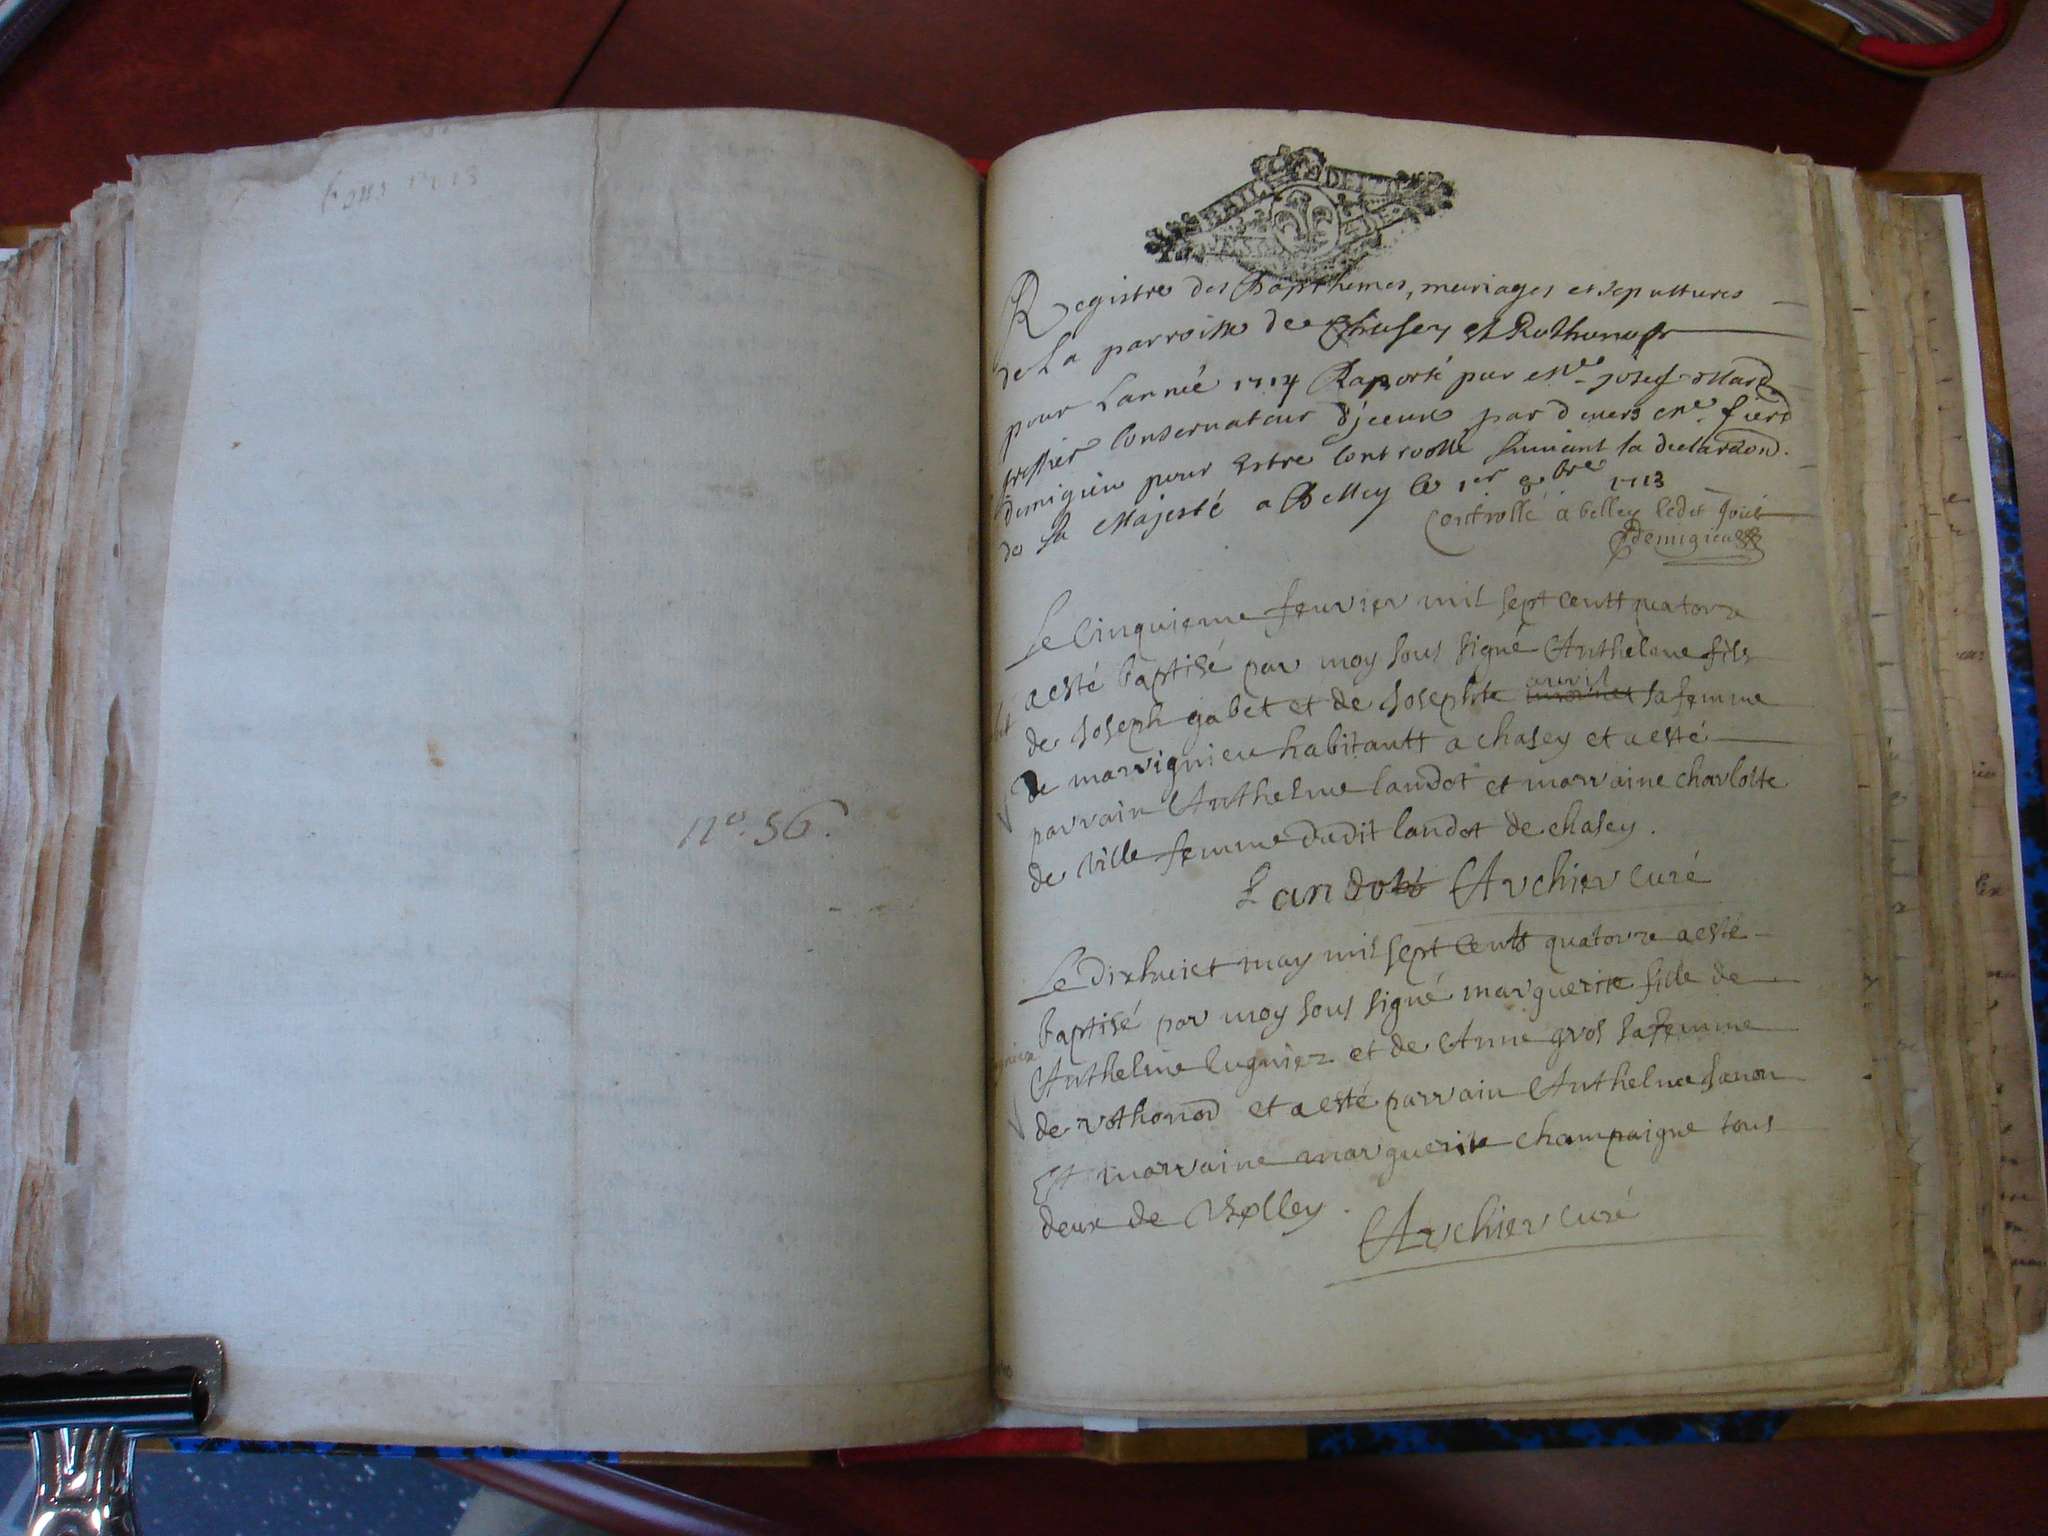 1713
n°. 56.
Registre des Bapthemes, mariages et sepultures
de La parroisse de Chasey et Rothonost
pour Lannée 1714 Raporté par Me Josef Mard
greffier Conservateur diceux par devers Me fierd
demigieu pour Estre Controollé suivant la declaraon.
de Sa Majesté a Belley le 1er 8bre 1713
Controllé a belley ledit Jour
Demigieu
Le Cinquieme feuvrier mil sept centt quatorze
a esté baptisé par moy sous signé Anthelme fils
de Joseph gabet et de Josephte auvril sa femme
de marvignieu habitantt a chasey et a esté
parrain Anthelme landot et marraine charlotte
de Ville femme dudit landot de chasey.
Landot Archier curé
Le dixhuict may mil sept centt quatorze a esté
baptisé par moy sous signé marguerite fille de
Anthelme lugniez et de Anne gros sa femme
de rothonod et a esté parrain Anthelme Janon
Et marraine marguerite champaigne tous
deux de Belley.
Archier curé